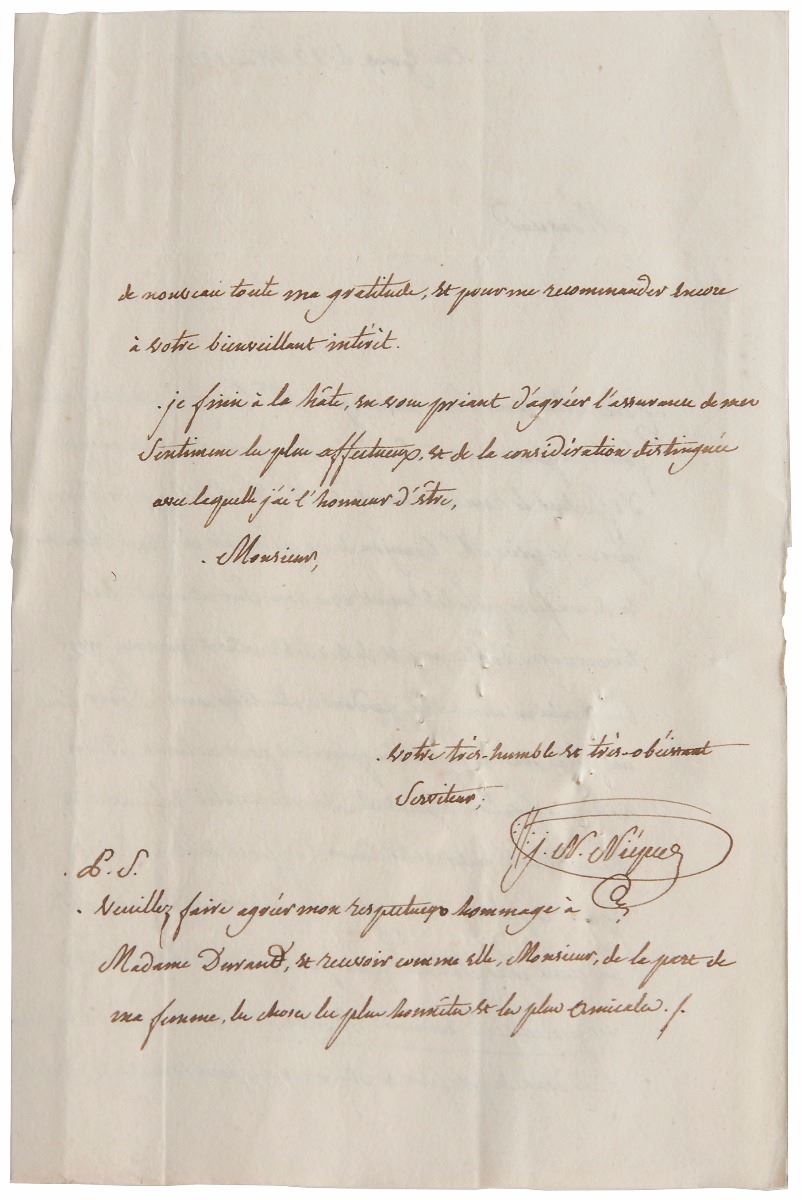 de nouveau toute ma gratitude, et pour me recommander encore
à votre bienveillant intérêt.
je finis à la hâte, en vous priant d'agréer l'assurance de mes
Sentimens les plus affectueux, et de la considération distinguée
avec laquelle j'ai l'honneur d'être,
Monsieur,
votre très-humble et très-obéissant
Serviteur,
J. N. Niépce
P. S.
Veuillez faire agréer mon respectueux hommage à
Madame Durand, et recevoir comme elle, Monsieur, de la part de
ma femme, les choses les plus honnêtes et les plus amicales ./.